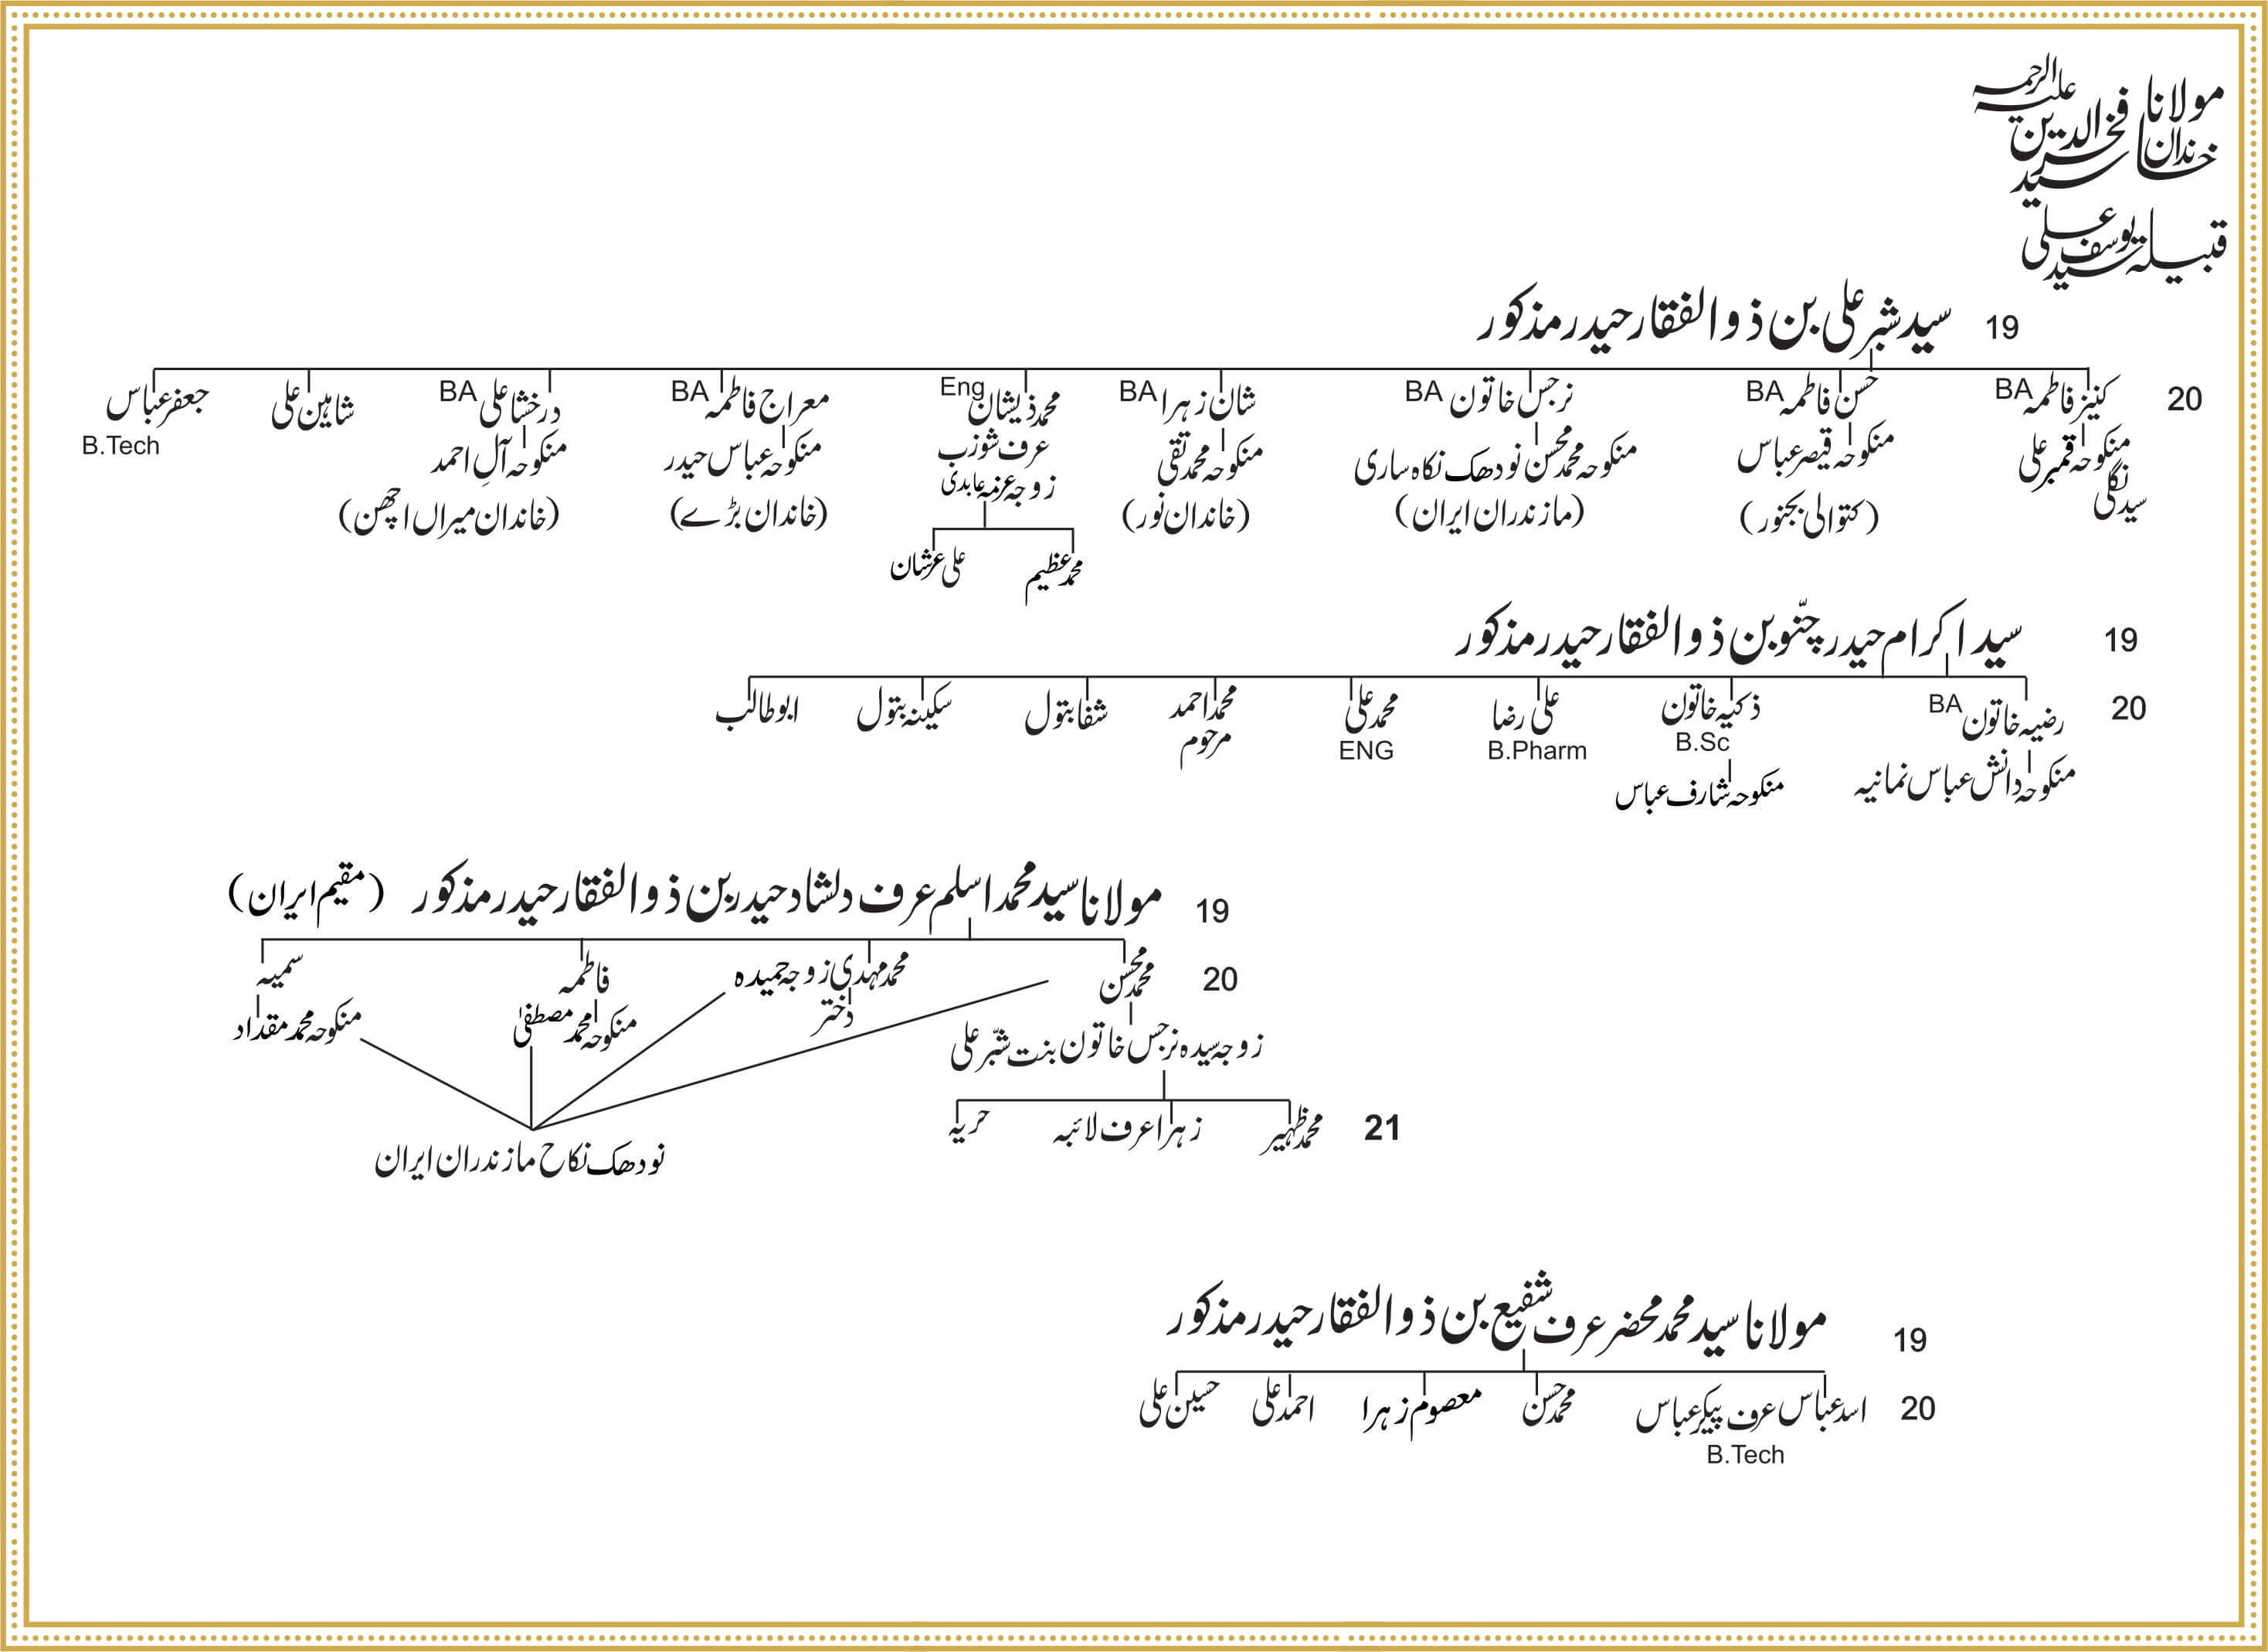 خاندان مولانا سید فخرالدین علیہ الرحمہ
قبیلہ سید یوسف علی
19 سید شبر علی بن ذوالفقار حیدر مذکور
20 کنیز فاطمہ BA حسن فاطمہ BA نرجس خاتون BA شان زہرا BA محمد ذیشان Eng معراج فاطمہ BA درخشا علی BA شاہین علی جعفر عباس
منکوحہ قمبر علی منکوحہ قیصر عباس منکوحہ محمد محسن نودھک نکاہ ساری منکوحہ محمد تقی عرف شوزب منکوحہ عباس حیدر منکوحہ آلِ احمد B.Tech
سید نگلی (کتوالی بجنور) (مازندران ایران) (خاندان نور) زوجہ عزمہ عابدی (خاندان بڑے) (خاندان میراں اچھن)
محمد عظیم علی عرشان
19 سید اکرام حیدر چنّو بن ذوالفقار حیدر مذکور
20 رضیہ خاتون BA ذکیہ خاتون علی رضا محمد علی محمد احمد شفا بتول سکینہ بتول ابو طالب
B.Sc B.Pharm ENG مرحوم
منکوحہ دانش عباس نمانیہ منکوحہ شارف عباس
19 مولانا سید محمد اسلم عرف دلشاد حیدر بن ذوالفقار حیدر مذکور (مقیم ایران)
20 محمد محسن محمد مہدی زوجہ حمیدہ فاطمہ سمیہ
دختر منکوحہ محمد مصطفیٰ منکوحہ محمد مقداد
زوجہ سیدہ نرجس خاتون بنت شبّر علی
21 محمد ظہیر زہرا عرف لائبہ حریہ
نودھک نکاح مازندران ایران
19 مولانا سید محمد محضر عرف شفیع بن ذوالفقار حیدر مذکور
20 اسد عباس عرف پیکر عباس محمد حسن معصوم زہرا احمد علی حسین علی
B.Tech